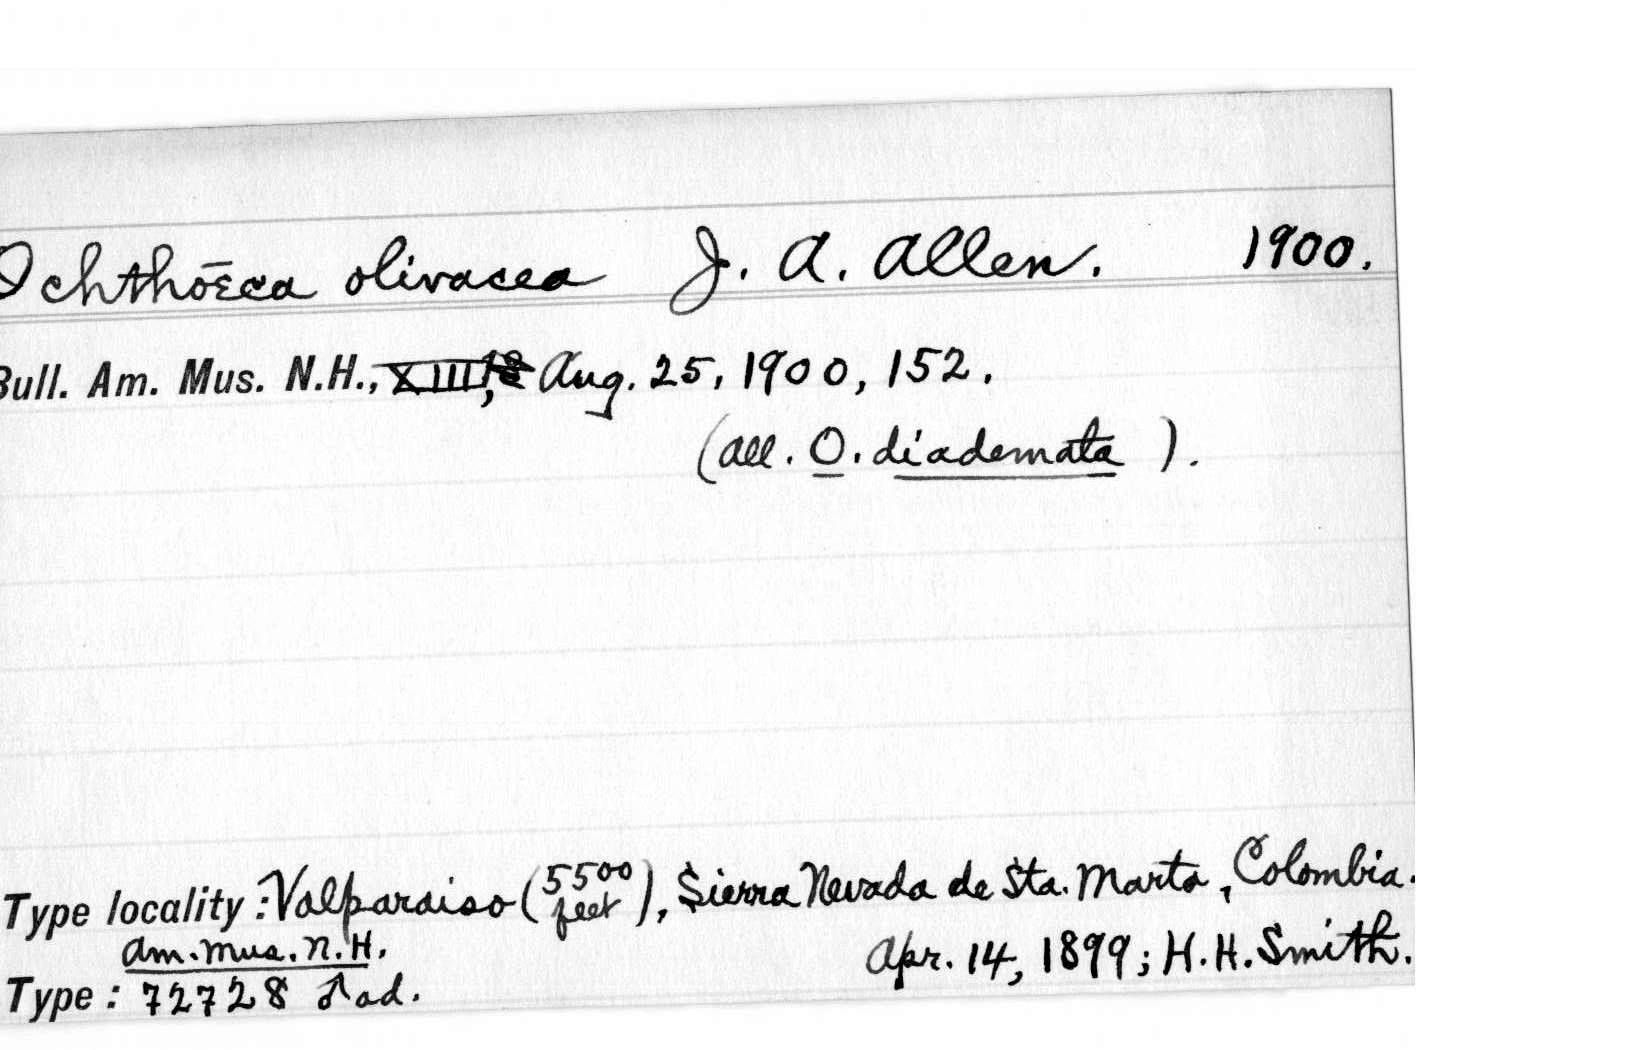 Ochthoëca olivacea J. A. Allen. 1900.
Bull. Am. Mus. N.H., XIII, Aug. 25, 1900, 152.
(all. O. diademata ).
Type locality: Valparaiso (5500 feet), Sierra Nevada de Sta. Marta, Colombia.
Am. Mus. N. H. Apr. 14, 1899; H. H. Smith.
Type: 72728 ♂ ad.